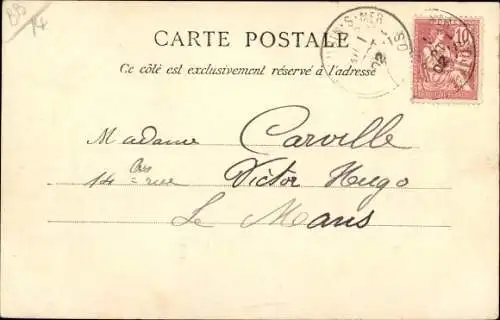 CARTE POSTALE
Ce côté est exclusivement réservé à l'adresse
S-MER
02
10
Madame Carville
14 rue Victor Hugo
Le Mans